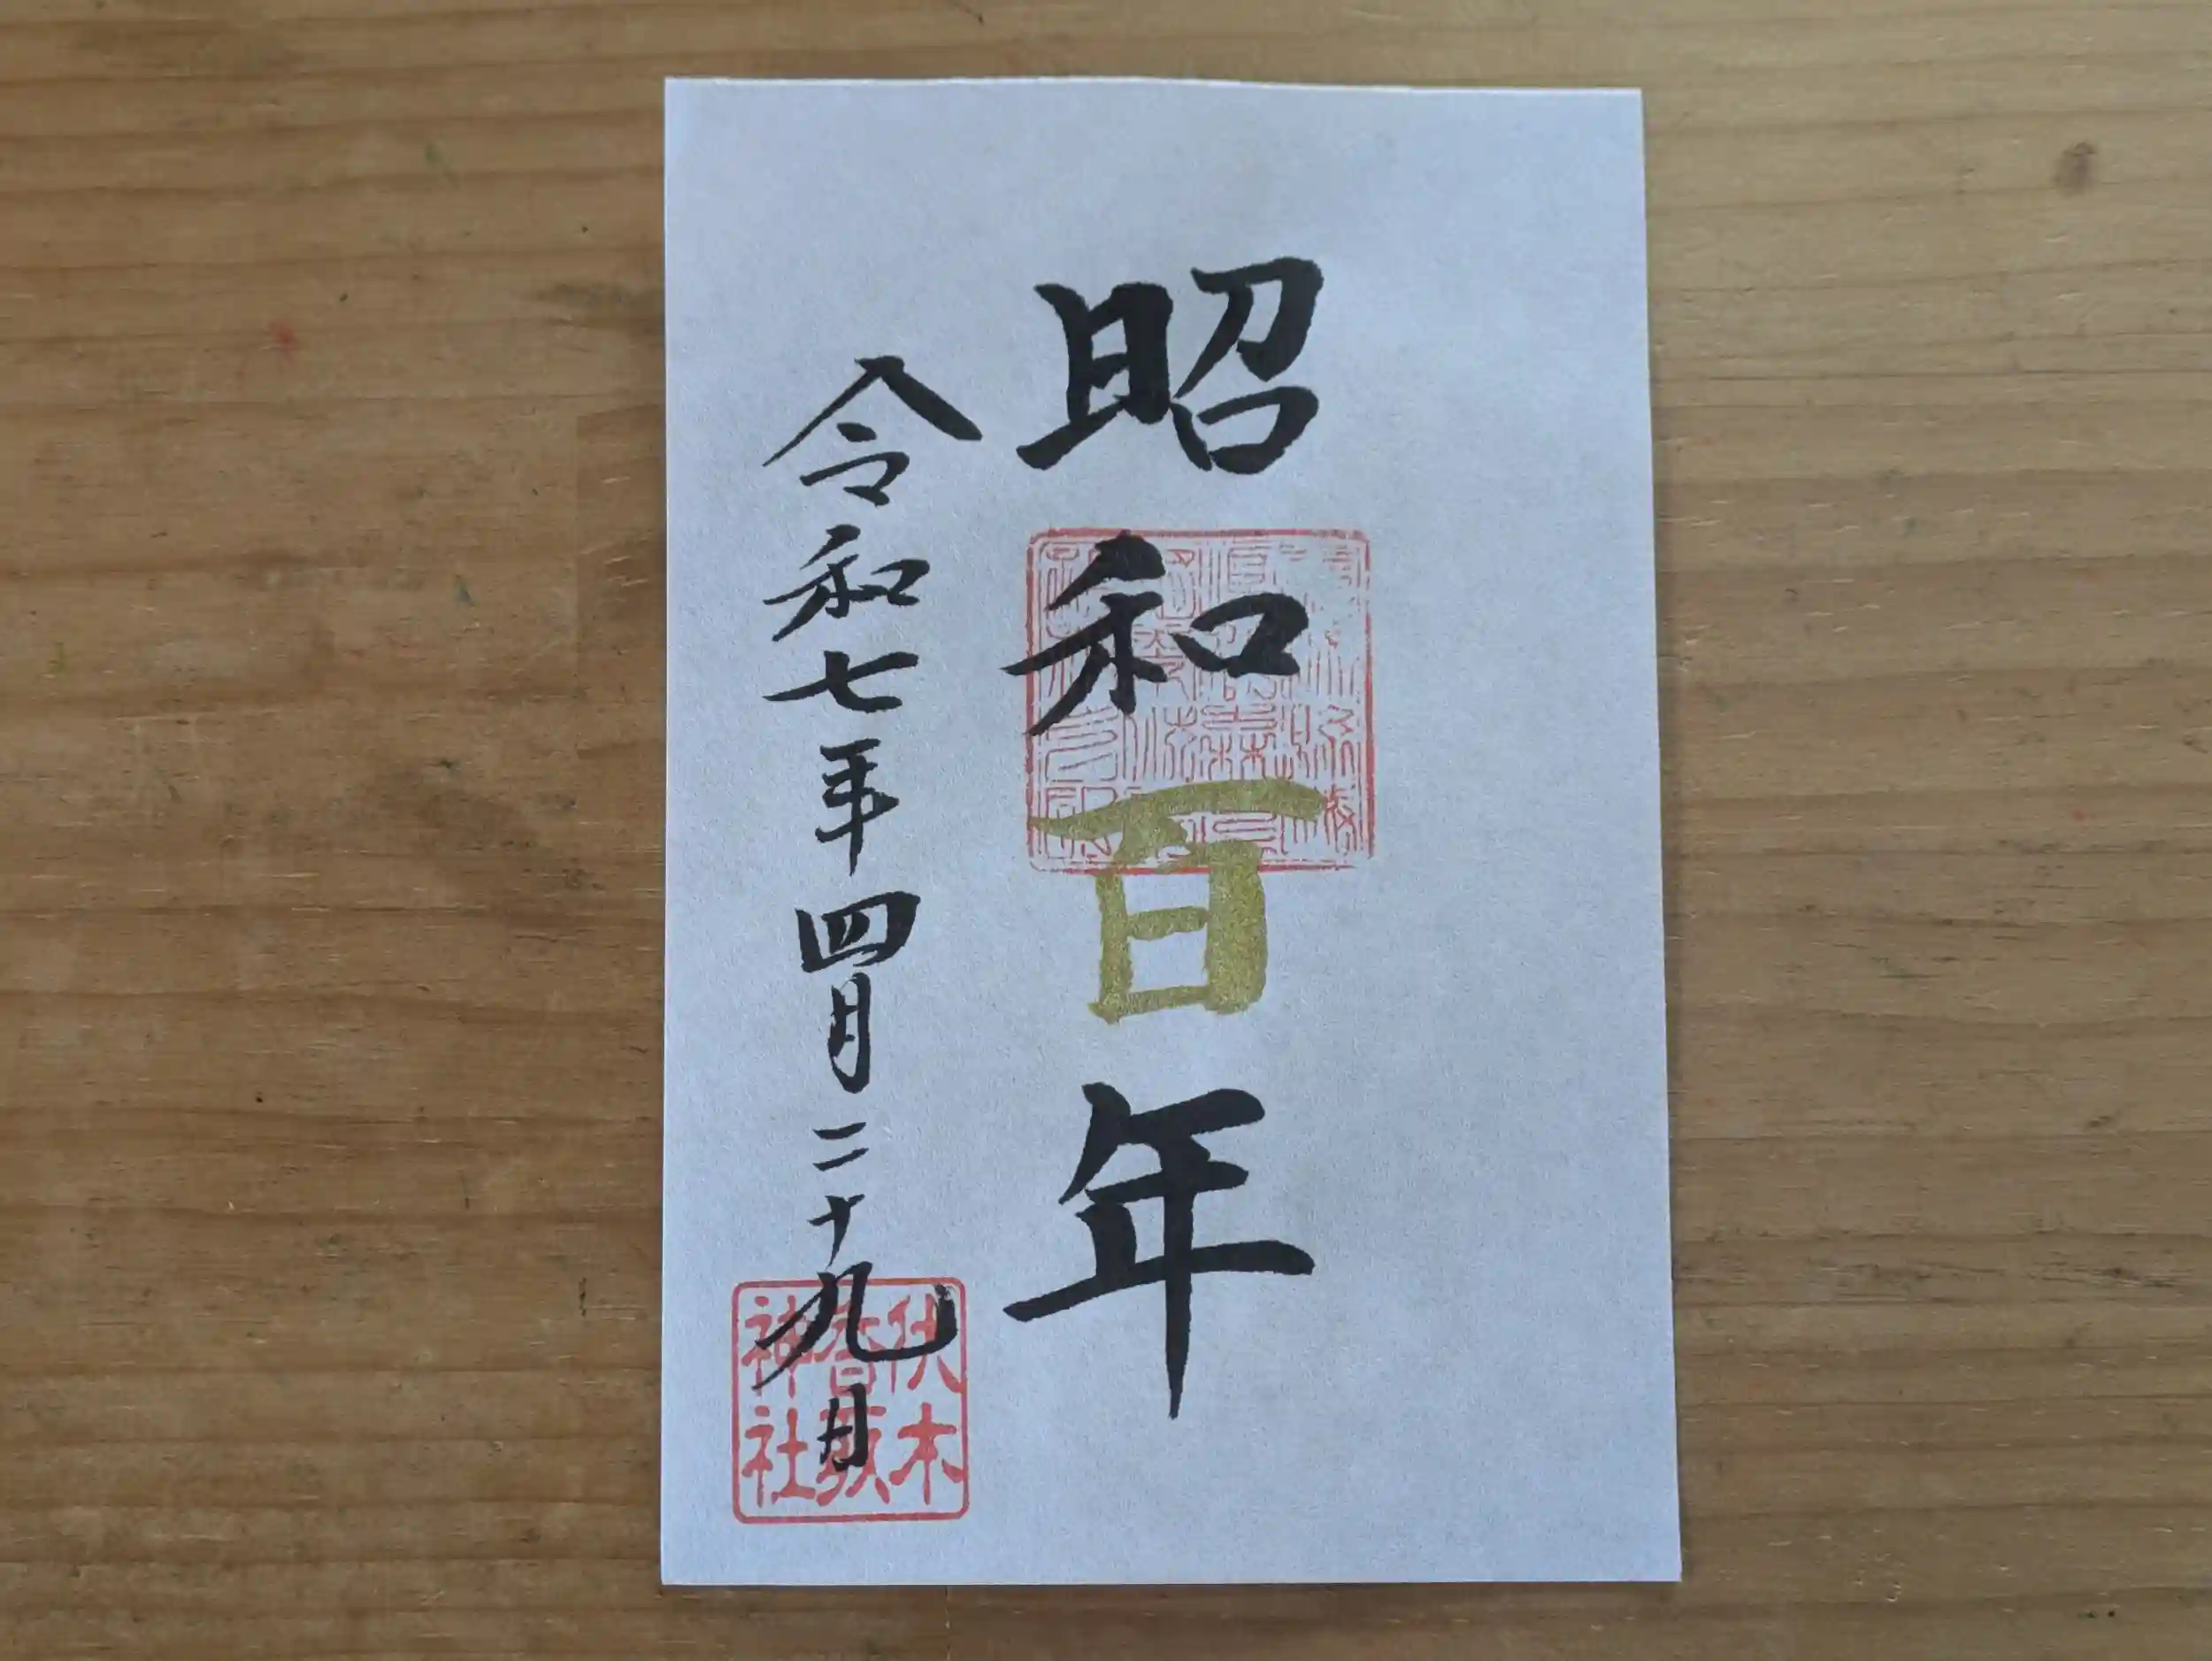 昭和百年
令和七年四月二十九日
伏木
香取
神社